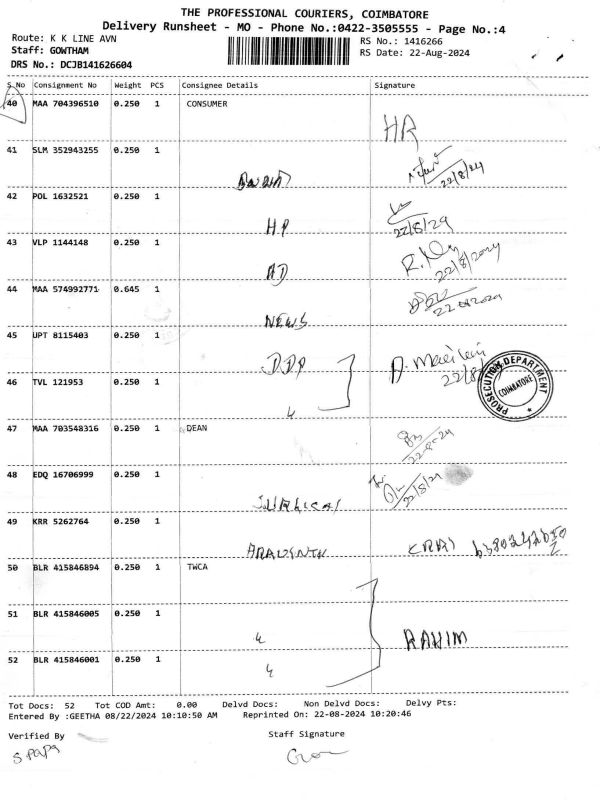 THE PROFESSIONAL COURIERS, COIMBATORE
Delivery Runsheet - MO - Phone No.:0422-3505555 - Page No.:4
Route: K K LINE AVN
RS No.: 1416266
Staff: GOWTHAM
RS Date: 22-Aug-2024
DRS No.: DCJB141626604
S.No Consignment No Weight PCS Consignee Details Signature
40 MAA 704396510 0.250 1 CONSUMER
HR
41 SLM 352943255 0.250 1
22/8/24
42 POL 1632521 0.250 1
HP 22/8/29
43 VLP 1144148 0.250 1
AD 22/8/2024
44 MAA 574992771 0.645 1
NEWS
45 UPT 8115403 0.250 1
DDP
PROSECUTION DEPARTMENT
COIMBATORE
46 TVL 121953 0.250 1
47 MAA 703548316 0.250 1 DEAN
22-8-24
48 EDQ 16706999 0.250 1
22/8/24
49 KRR 5262764 0.250 1
50 BLR 415846894 0.250 1 TWCA
51 BLR 415846005 0.250 1
RAHIM
52 BLR 415846001 0.250 1
Tot Docs: 52 Tot COD Amt: 0.00 Delvd Docs: Non Delvd Docs: Delvy Pts:
Entered By :GEETHA 08/22/2024 10:10:50 AM Reprinted On: 22-08-2024 10:20:46
Verified By Staff Signature